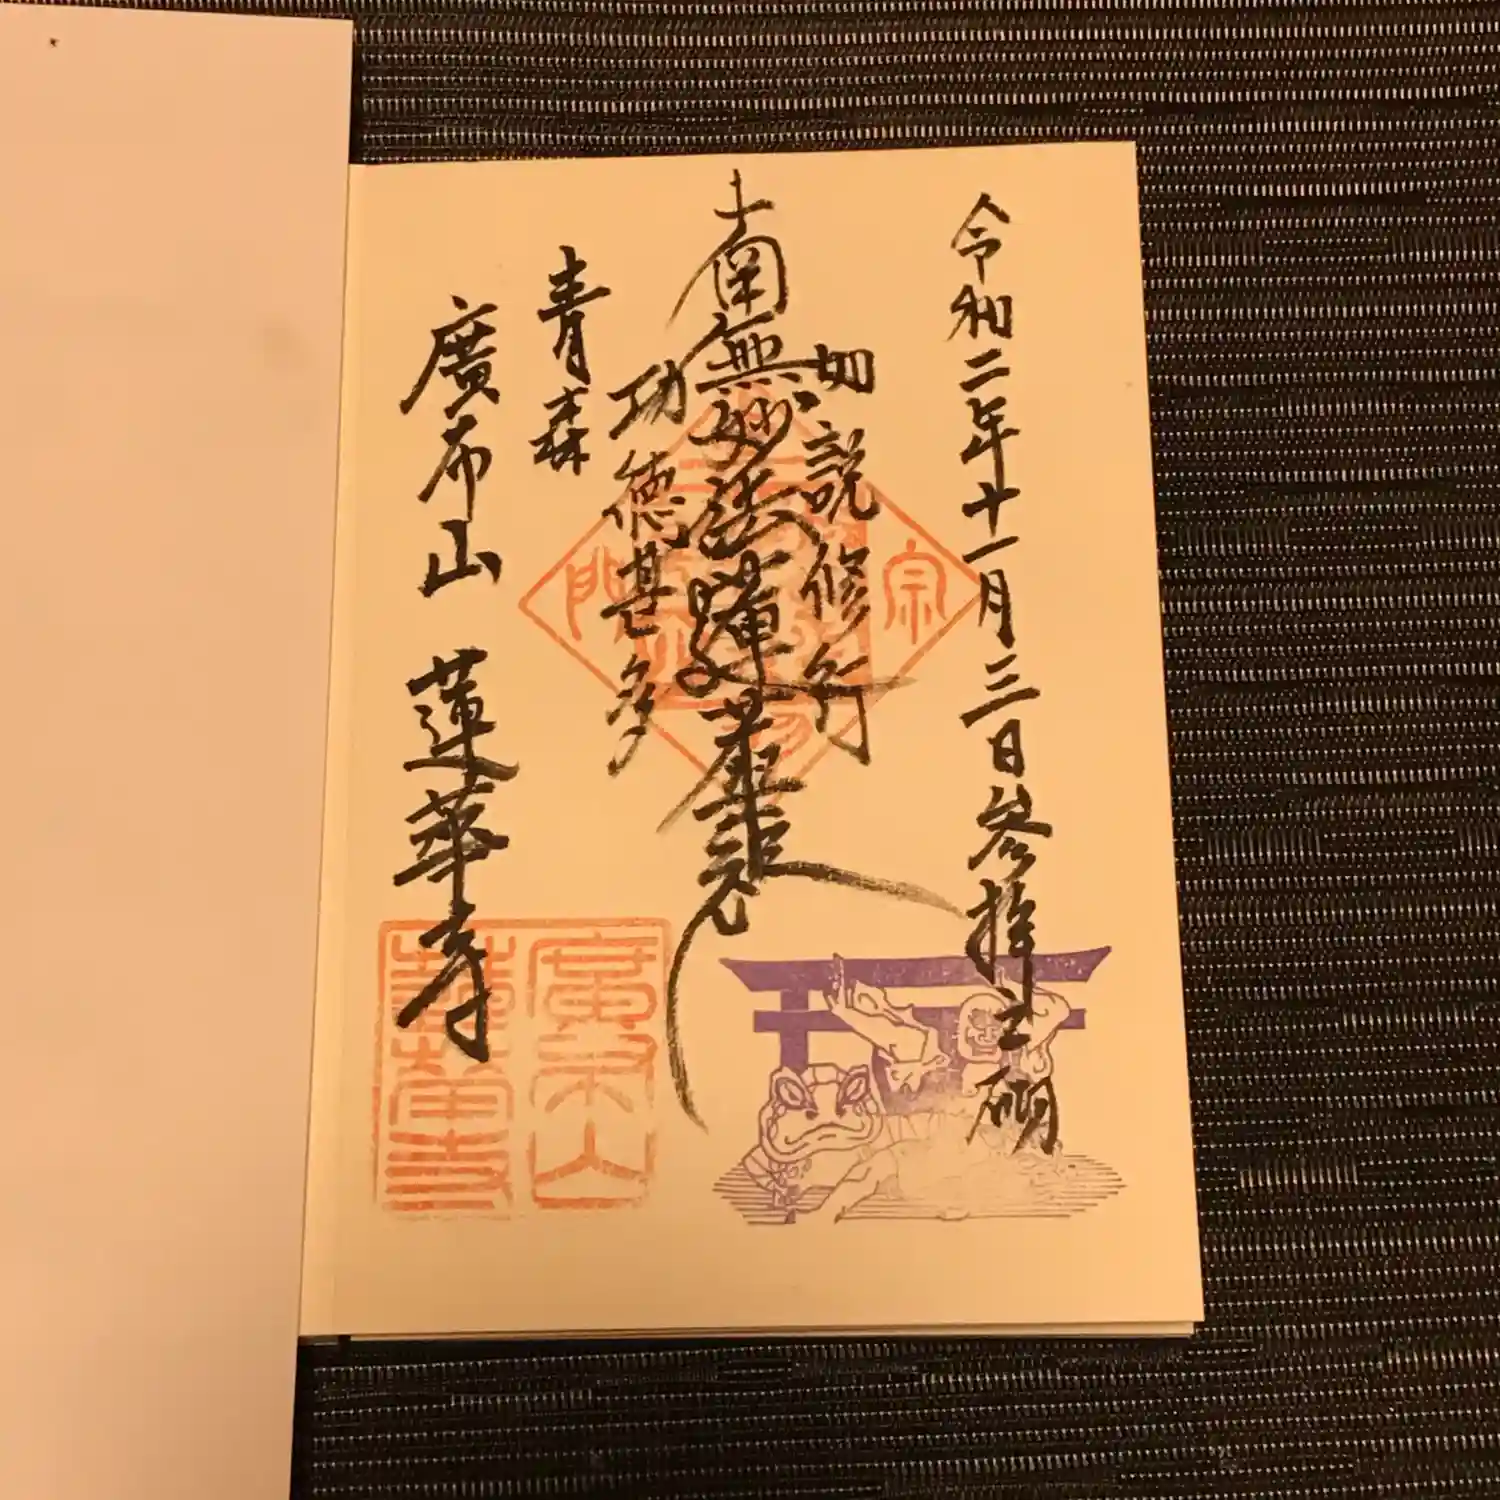 令和二年十一月三日参拝之砌
如説修行
南無妙法蓮華経
功徳甚多
青森
廣布山 蓮華寺
宗
門
廣布山
蓮華寺